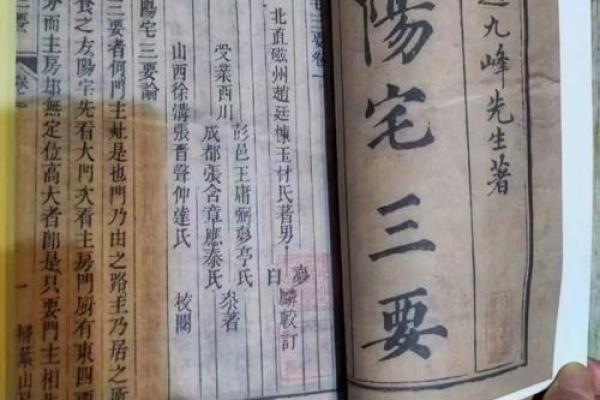 九峰先生著
陽宅三要
三要卷一
北直磁州趙廷棟玉材氏著男
夢麟較訂
白
受業西川
彭邑王庸弼夢亭氏
成都張含章應泰氏
叅著
山西徐溝張晉聲仲達氏
校閱
陽宅三要論
三要者何門主灶是也門乃由之路主乃居之所
食之方陽宅先看大門次看主房門廚有東四要
分而主房却無定位高大者即是只要門主相
三要
一
掃葉山